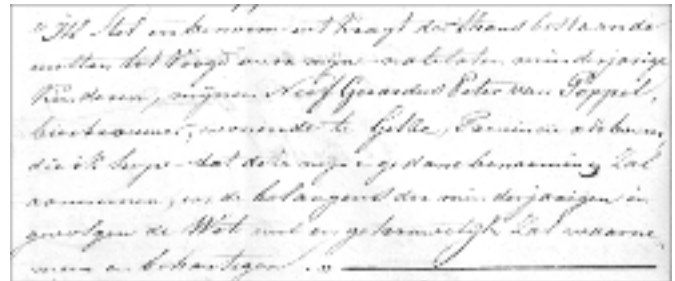 "Ik stel en benoem uit kragt der thans bestaande
wetten tot Voogd over mijne natelaten minderjarige
Kinderen, mijnen Neef Gerardus Peter van Poppel,
bierbrouwer, wonende te Gilze, Provincie
die ik hope dat deze mijne gedane benoeming zal
aannemen, en de belangens der minderjarigen in
gevolgen de Wet wel en getrouwelijk zal waarne
men en behartigen."